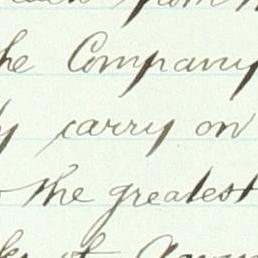 from
the Company
carry on
the greatest
of